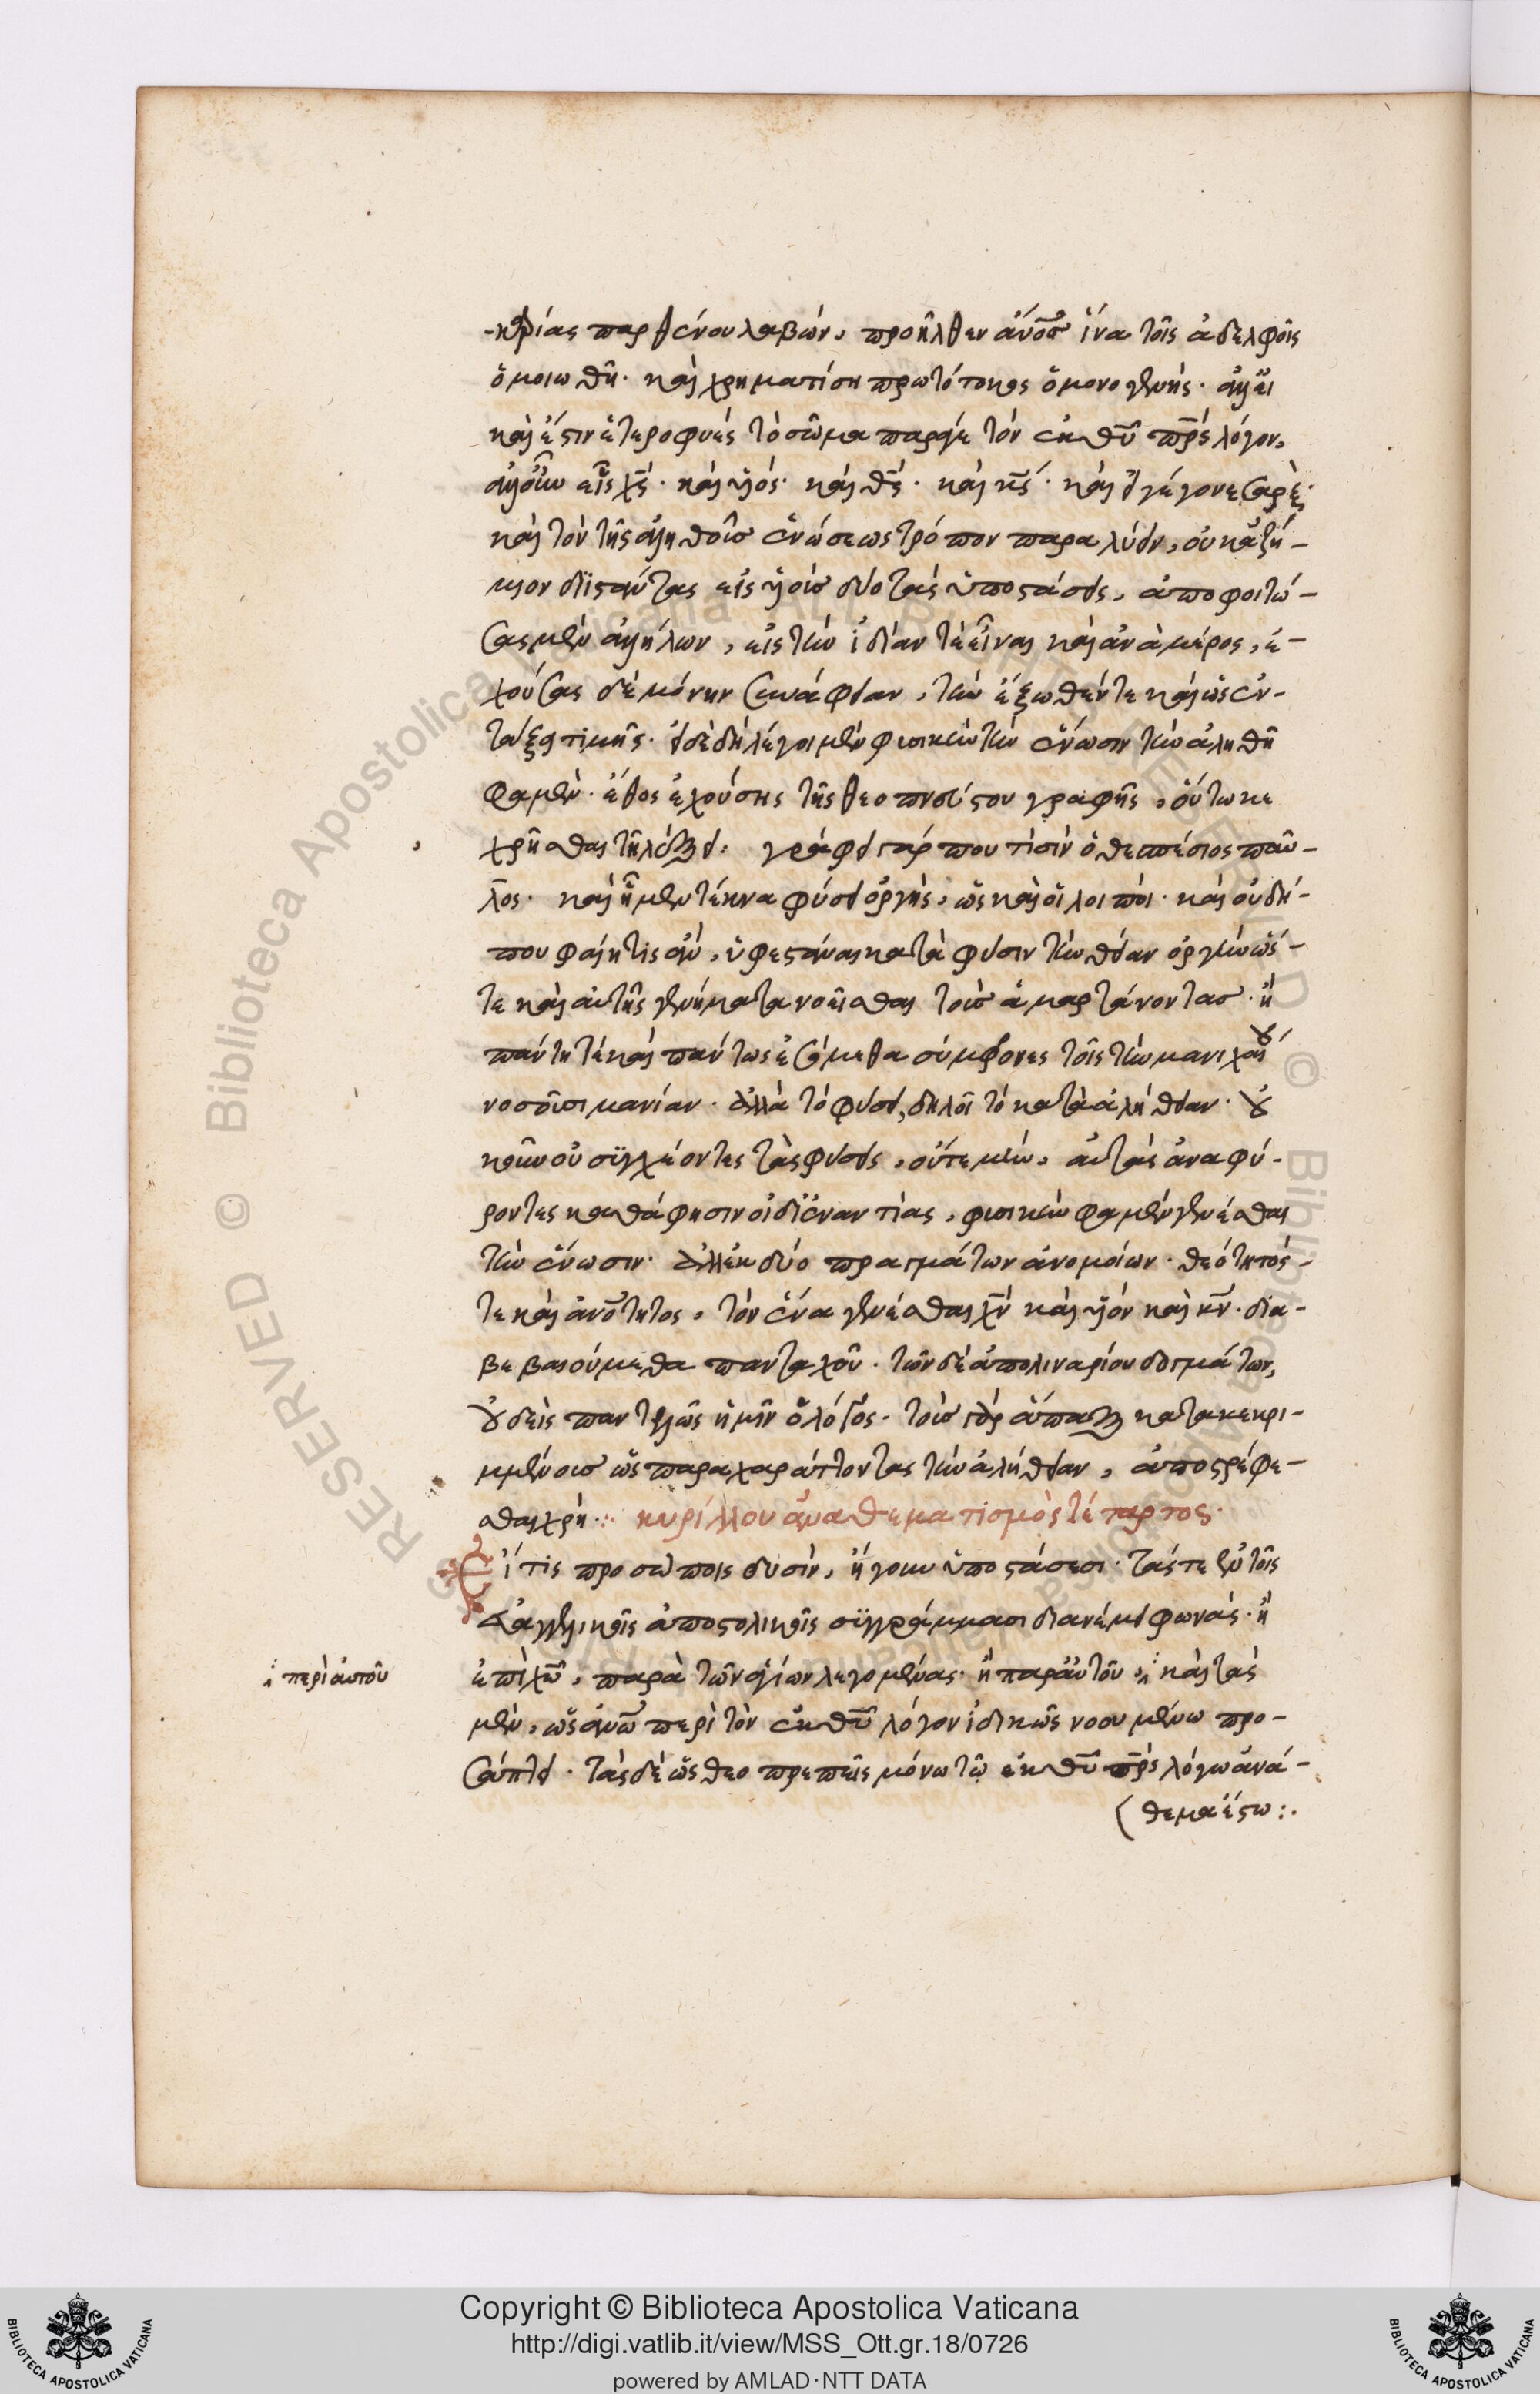 -κῆς ἁγίας παρθένου λαβών, προῆλθεν ἄνος ἵνα τοῖς ἀδελφοῖς
ὁμοιωθῆ· καὶ χρηματίση πρωτότοκος ὁ μονογενής· ἀλλ' εἰ
καὶ ἔστιν ἑτεροφυὲς τὸ σῶμα παρά γε τὸν ἐκ θῦ πρς λόγον,
ἀλλ' οὖν εἷς χς· καὶ υἱός· καὶ θς· καὶ κς· καὶ εἰ γέγονε σαρξ·
καὶ τὸν τῆς ἀληθοῦς ἑνώσεως τρόπον παραλύειν, οὐκ ἀζή-
μιον διϊστάντας εἰς υἱοὺς δύο τὰς ὑποστάσεις, ἀποφοιτώ-
σας μὲν ἀλλήλων, εἰς τὴν ἰδίαν τὲ εἶναι καὶ ἀνὰ μέρος, ἐ-
χούσας δὲ μόνην συνάφειαν, τὴν ἔξωθέν τε καὶ ὡς ἐν-
τάξει τιμῆς· εἰ δὲ δὴ λέγοιμεν φυσικὴν τὴν ἕνωσιν τὴν ἀληθῆ
φαμὲν· ἔθος ἐχούσης τῆς θεοπνεύστου γραφῆς, οὕτω κε
χρῆσθαι τῆ λέξει. γράφει γάρ που τισὶν ὁ θεσπέσιος παῦ-
λος· καὶ ἦμεν τέκνα φύσει ὀργῆς, ὡς καὶ οἱ λοιποί· καὶ οὐ δή-
που φαίη τὶς ἂν, ὑφεστάναι κατὰ φύσιν τὴν θείαν ὀργὴν ὥσ-
τε καὶ αὐτῆς γεννήματα νοεῖσθαι τοὺς ἁμαρτάνοντας· ἢ
πάντη τὲ καὶ πάντως ἐσόμεθα σύμφρονες τοῖς τὴν μανιχαίου
νοσοῦσι μανίαν· ἀλλὰ τὸ φύσει, δηλοῖ τὸ κατὰ ἀλήθειαν· οὐ
κοῦν οὐ συγχέοντες τὰς φύσεις, οὔτε μὴν, αὐτὰς ἀναφύ-
ροντες καθά φησιν οἱ δι' ἐναντίας, φυσικὴν φαμὲν γενέσθαι
τὴν ἕνωσιν· ἀλλ' ἐκ δύο πραγμάτων ἀνομοίων· θεότητός-
τε καὶ ἀνότητος, τὸν ἕνα γενέσθαι χν καὶ υἱὸν καὶ κν· δια-
βεβαιούμεθα πανταχοῦ· τῶν δὲ ἀπολιναρίου δογμάτων,
οὐδεὶς παντελῶς ἡμῖν ὁ λόγος· τοὺς γὰρ ἅπαξ κατακεκρι-
μμένους ὡς παραχαράττοντας τὴν ἀλήθειαν, ἀποστρέφε-
σθαι χρή·:· κυρίλλου ἀναθεματισμὸς τέταρτος·
Εἴ τις προσώποις δυσὶν, ἤγουν ὑποστάσεσι· τάς τε ἐν τοῖς
εὐαγγελικοῖς ἀποστολικοῖς συγγράμμασι διανέμει φωνάς· ἢ
ἐπὶ χῶ, παρὰ τῶν ἁγίων λεγομένας· ἢ παρ' αὐτοῦ, καὶ τὰς
περὶ αὐτοῦ
μὲν, ὡς ἀνῶ περὶ τὸν ἐκ θῦ λόγον ἰδικῶς νοουμένω προ-
σάπτει· τὰς δὲ ὡς θεοπρεπεῖς μόνω τῷ ἐκ θῦ πρς λόγω ἀνά-
θεμα ἔστω:.
Copyright © Biblioteca Apostolica Vaticana
http://digi.vatlib.it/view/MSS_Ott.gr.18/0726
powered by AMLAD·NTT DATA